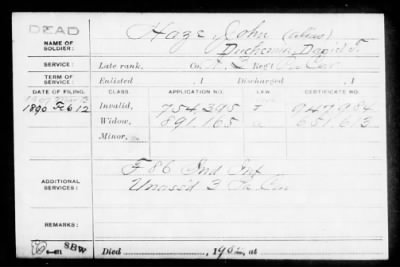 DEAD
NAME OF SOLDIER: Haze John (alias)
Duchemin, David F.
SERVICE: Late rank, Co. Reg't Cav
TERM OF SERVICE: Enlisted , 1 Discharged , 1
DATE OF FILING. CLASS. APPLICATION NO. CERTIFICATE NO.
1890 Feb 12 Invalid, 754395 947984
Widow, 891165 a 651613
Minor,
ADDITIONAL SERVICES: F 86 Ind Inf
Unass'd 3
REMARKS:
SBW Died , 190 , at